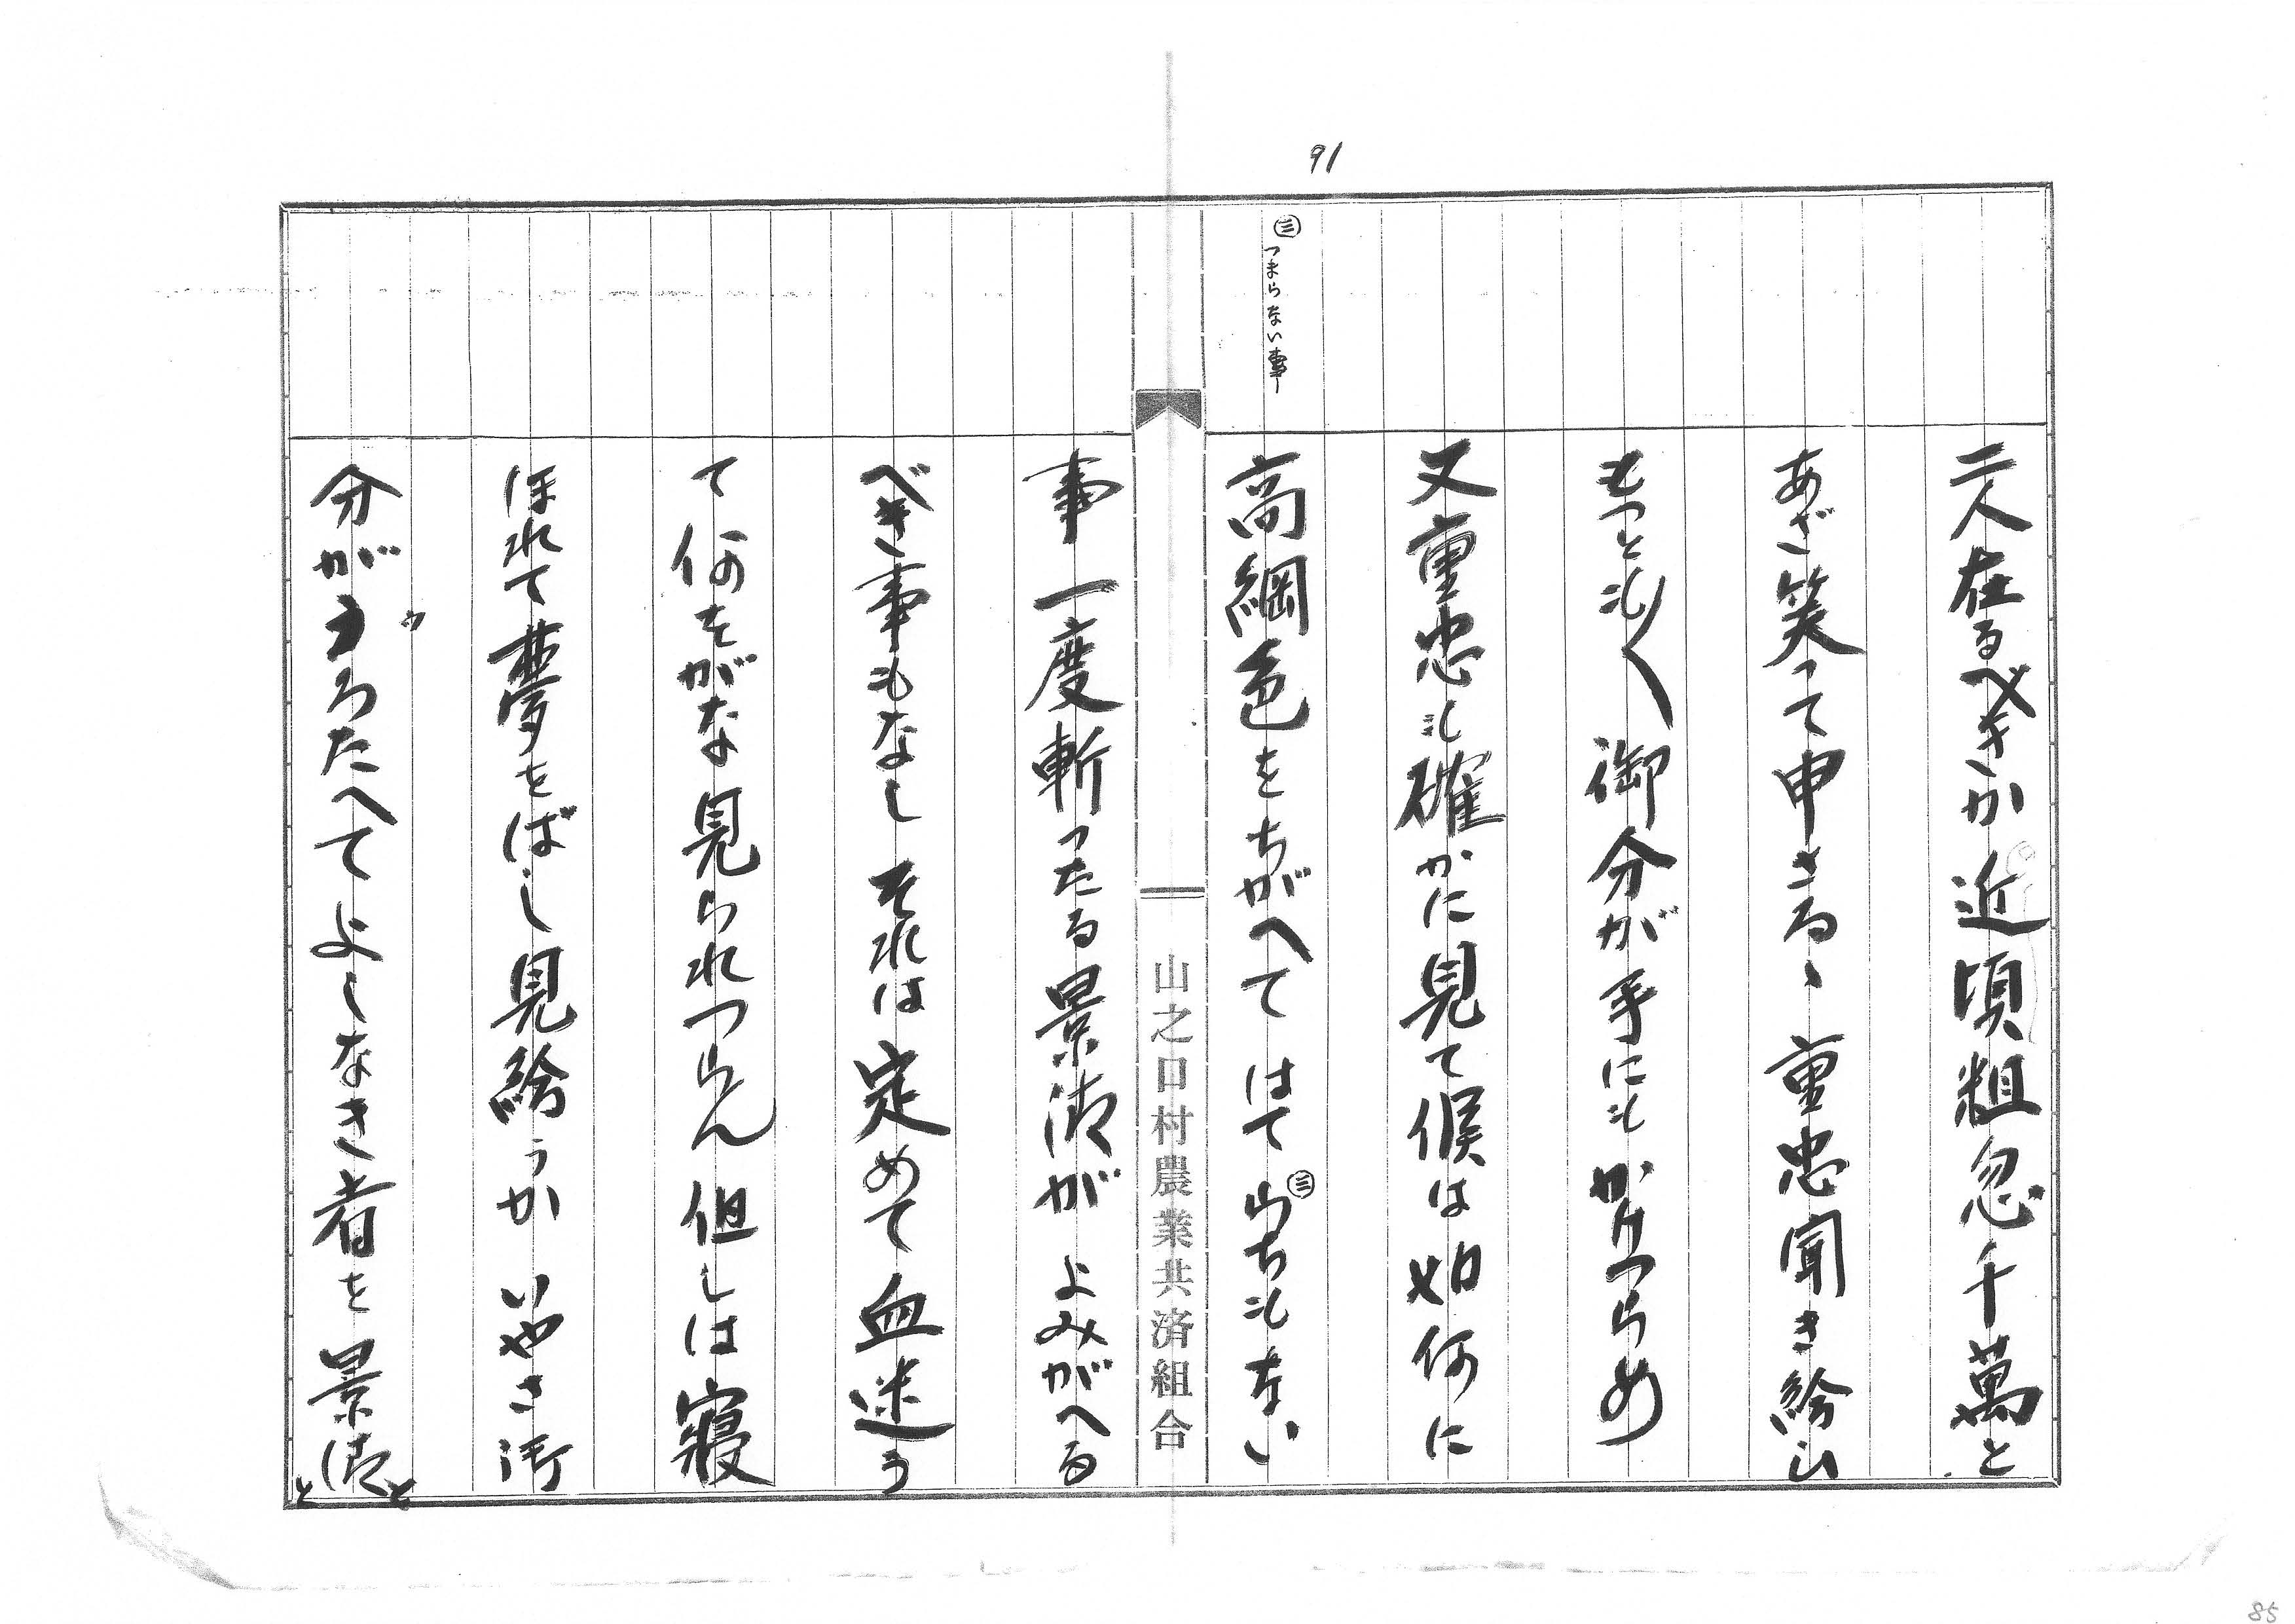 91
二人在るべきか近頃粗忽千萬と
あざ笑って申さるゝ重忠聞き給ひ
もっとも〱御分が手にもかけつらめ
又重忠も確かに見て候は如何に
㊂つまらない事
高綱色をちがへてはて㊂らちもない
山之口村農業共済組合
事一度斬ったる景清がよみがへる
べき事もなしそれは定めて血迷う
て何をがな見られつらん但しは寝
ほれて夢をばし見給うかいやさ御
分がうろたへてよしなき者を景清
ウ
と
と
85